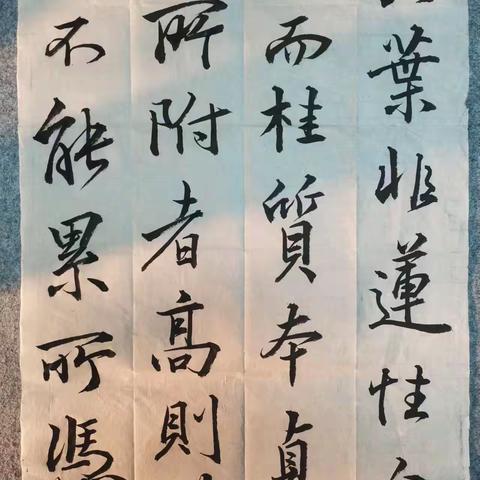 葉非蓮性
而桂質本貞
所附者高則
不能累所憑